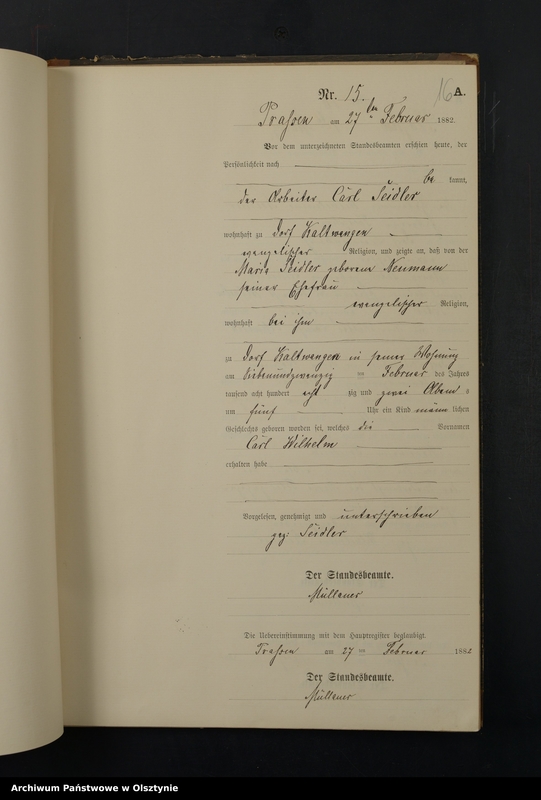 Nr. 15.
16 A.
am 27ten Februar 1882.
Vor dem unterzeichneten Standesbeamten erschien heute, der
Persönlichkeit nach
be kannt,
der Arbeiter Carl Seidler
wohnhaft zu Dorf Kaltwangen
evangelischer Religion, und zeigte an, daß von der
Maria Seidler geborene Neumann
seiner Ehefrau
evangelischer Religion,
wohnhaft bei ihm
zu Dorf Kaltwangen in seiner Wohnung
am Siebenundzwanzig ten Februar des Jahres
tausend acht hundert acht zig und zwei Abend s
um fünf Uhr ein Kind männ lichen
Geschlechts geboren worden sei, welches die Vornamen
Carl Wilhelm
erhalten habe
Vorgelesen, genehmigt und unterschrieben
gez: Seidler
Der Standesbeamte.
Die Uebereinstimmung mit dem Hauptregister beglaubigt.
am 27 ten Februar 1882
Der Standesbeamte.
Archiwum Państwowe w Olsztynie